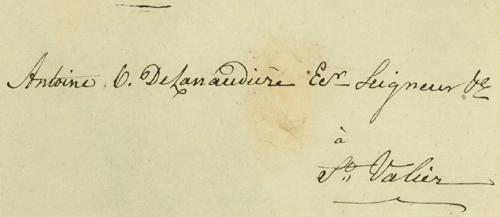 Antoine O. DeLanaudière Esr Seigneur &c
à
St. Valier